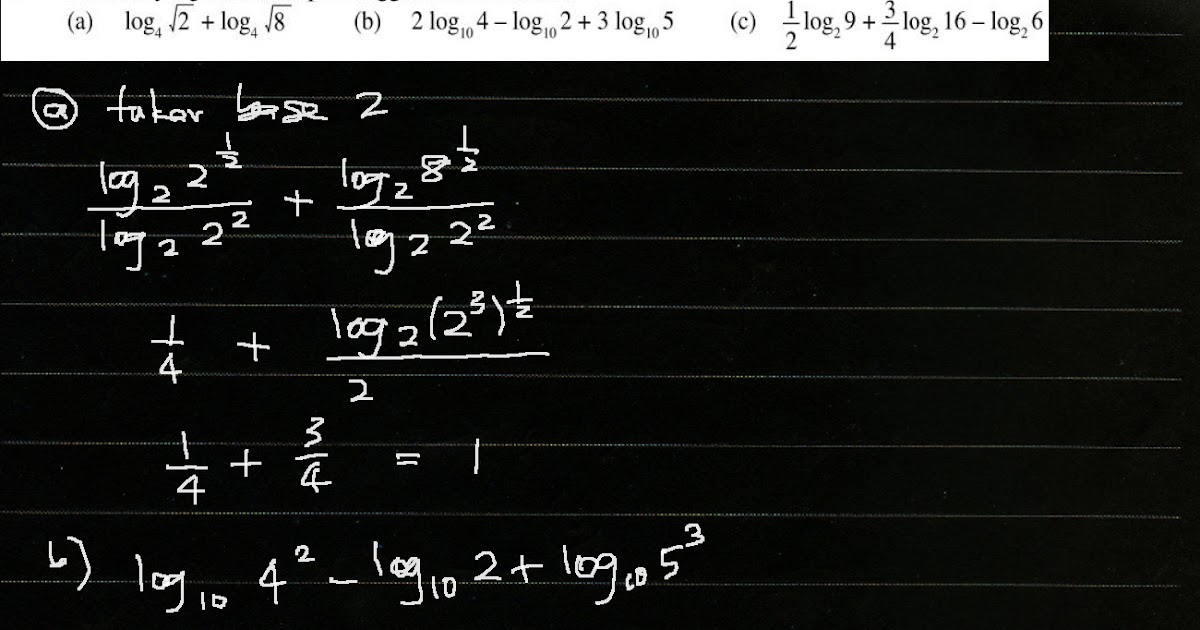 (a) log₄ √2 + log₄ √8 (b) 2 log₁₀ 4 – log₁₀ 2 + 3 log₁₀ 5 (c) 1/2 log₂ 9 + 3/4 log₂ 16 – log₂ 6
(a) tukar base 2
log₂ 2^(1/2) / log₂ 2² + log₂ 8^(1/2) / log₂ 2²
1/4 + log₂ (2³)^(1/2) / 2
1/4 + 3/4 = 1
b) log₁₀ 4² – log₁₀ 2 + log₁₀ 5³